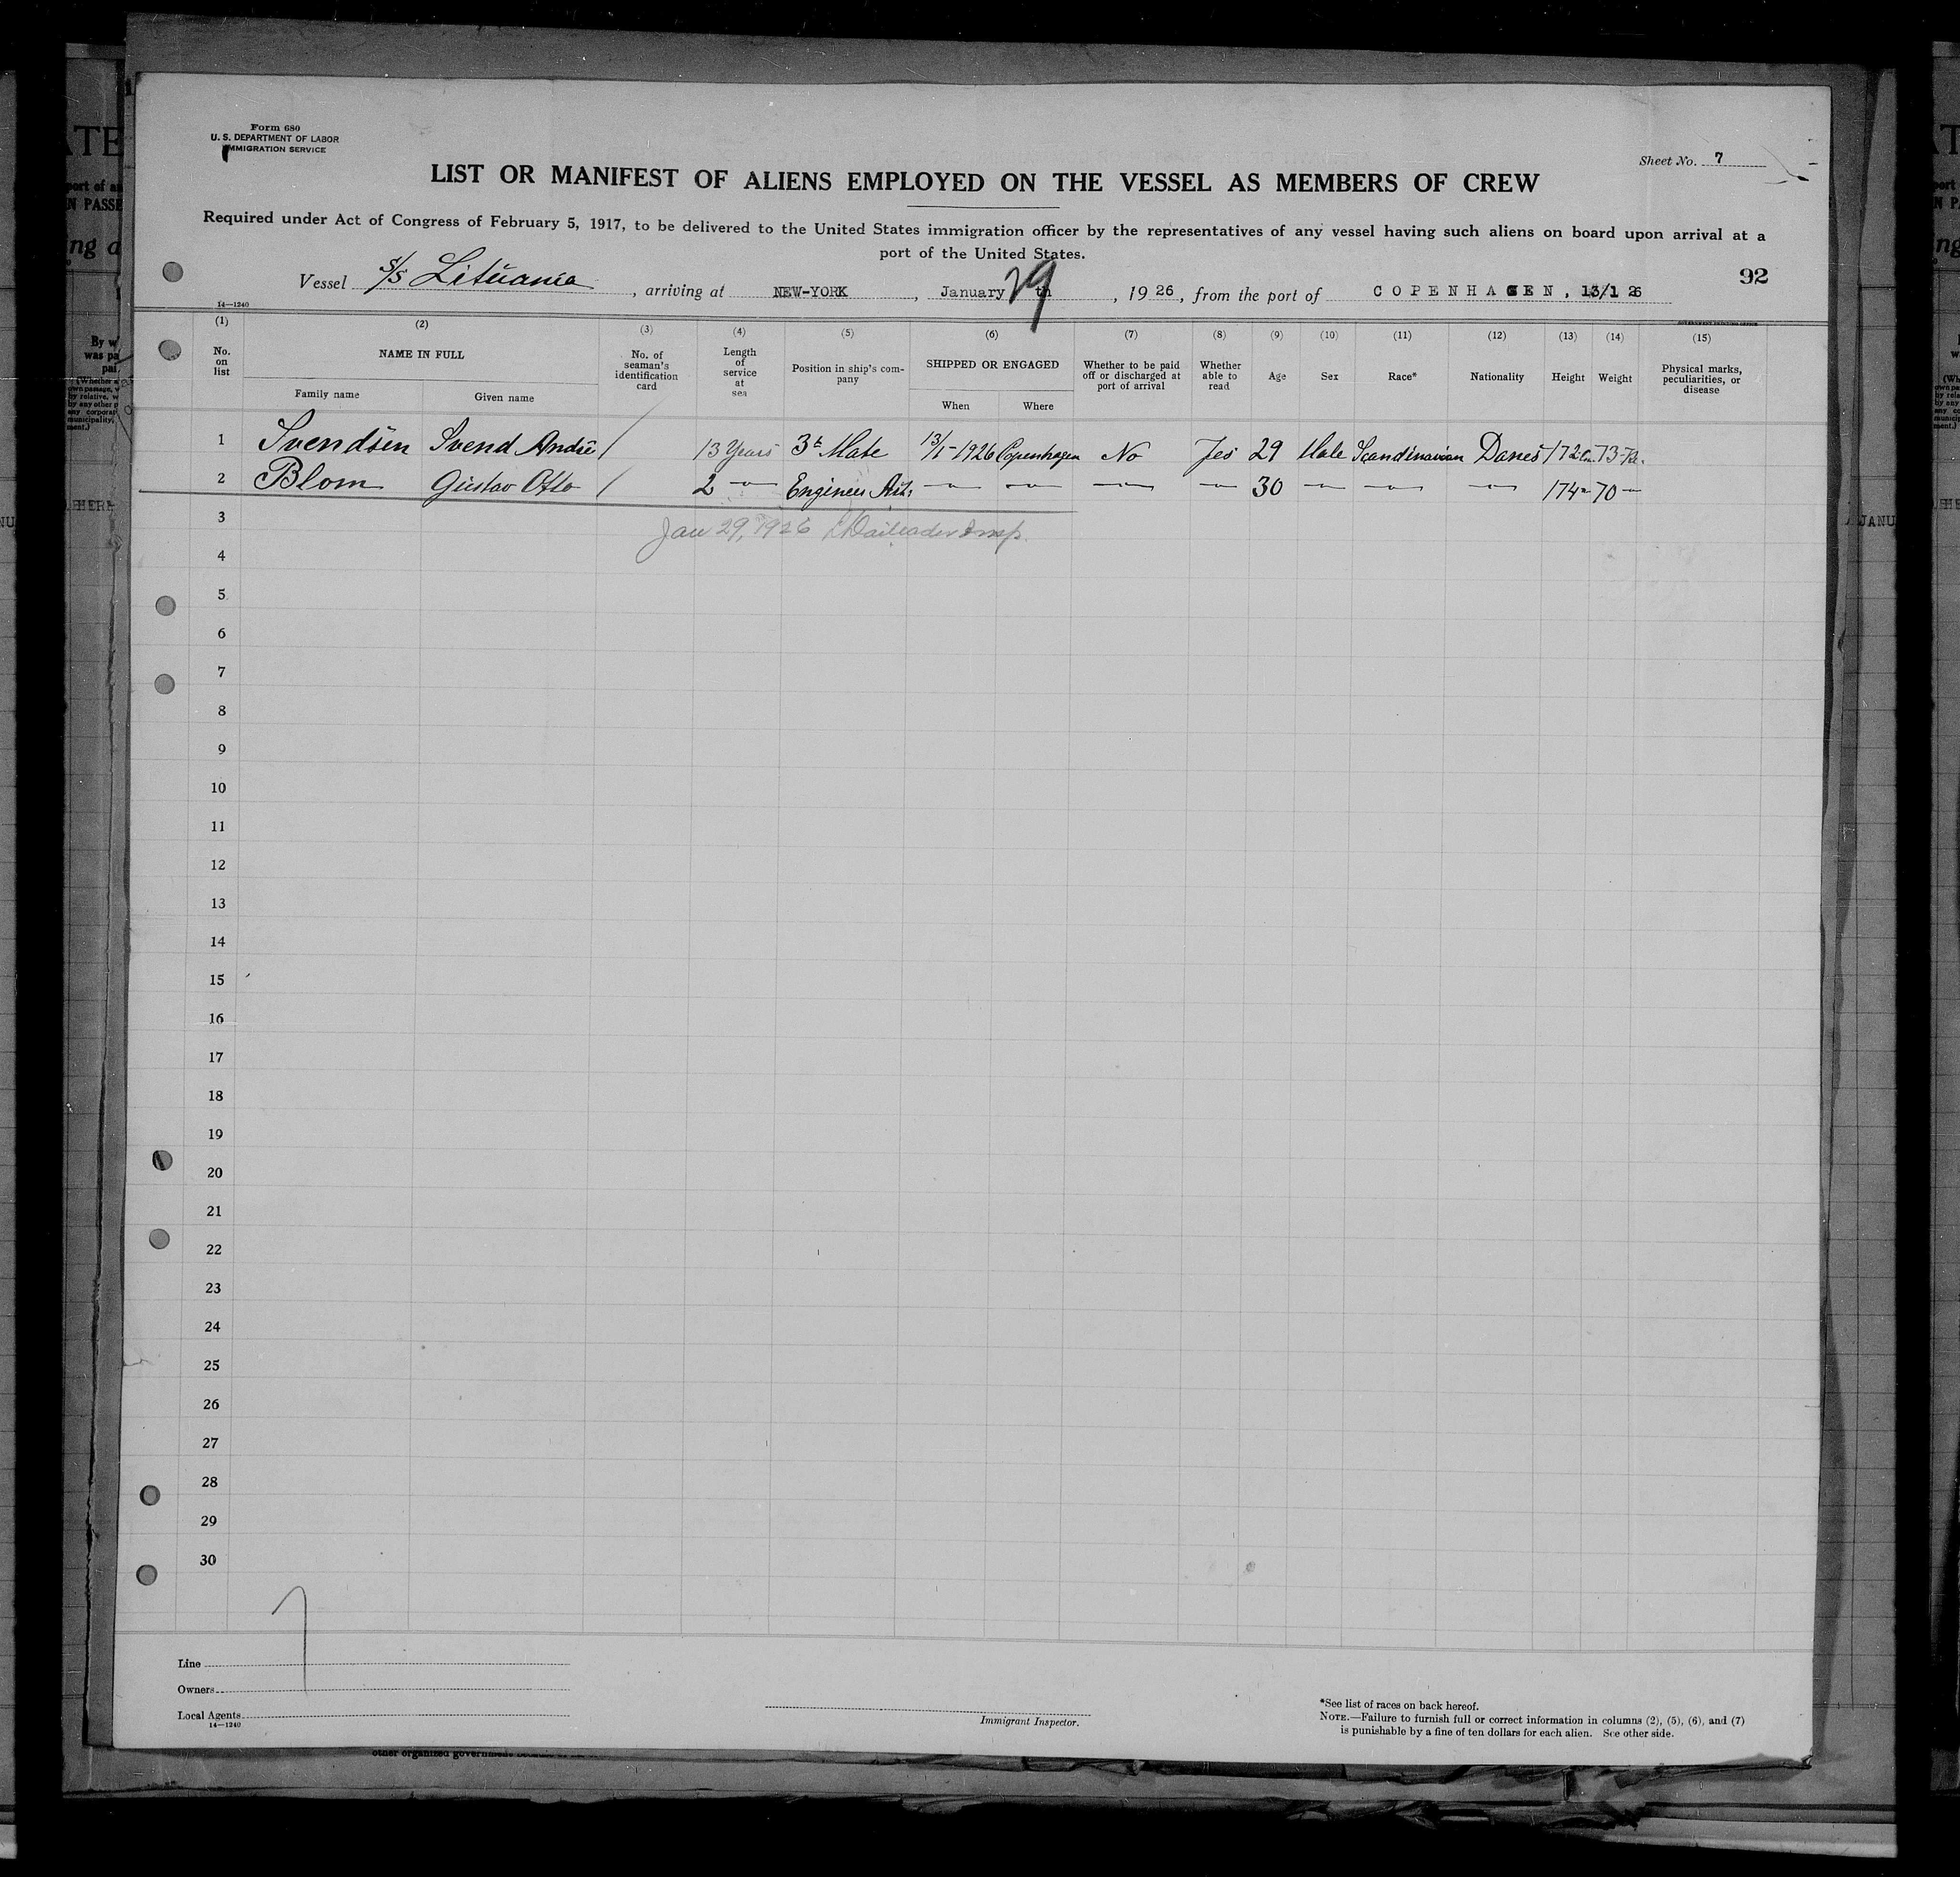 Form 680
U. S. DEPARTMENT OF LABOR
IMMIGRATION SERVICE
Sheet No. 7
LIST OR MANIFEST OF ALIENS EMPLOYED ON THE VESSEL AS MEMBERS OF CREW
Required under Act of Congress of February 5, 1917, to be delivered to the United States immigration officer by the representatives of any vessel having such aliens on board upon arrival at a
port of the United States.
92
Vessel S/S Lituania, arriving at NEW-YORK, January 29 th, 1926, from the port of COPENHAGEN, 13/1 26
14—1240
(1) (2) (3) (4) (5) (6) (7) (8) (9) (10) (11) (12) (13) (14) (15)
No. on list NAME IN FULL No. of seaman's identification card Length of service at sea Position in ship's company SHIPPED OR ENGAGED Whether to be paid off or discharged at port of arrival Whether able to read Age Sex Race* Nationality Height Weight Physical marks, peculiarities, or disease
Family name Given name When Where
1 Svendsen Svend André / 13 Years 3t Mate 13/1-1926 Copenhagen No Yes 29 Male Scandinavian Danes 172 cm. 73
2 Blom Gustav Otto / 2 — Engineer — — — — 30 — — — 174 — 70 —
3
Jan 29, 1926 Insp.
4
5
6
7
8
9
10
11
12
13
14
15
16
17
18
19
20
21
22
23
24
25
26
27
28
29
30
Line
Owners
Local Agents
14—1240
Immigrant Inspector.
*See list of races on back hereof.
NOTE.—Failure to furnish full or correct information in columns (2), (5), (6), and (7)
is punishable by a fine of ten dollars for each alien. See other side.